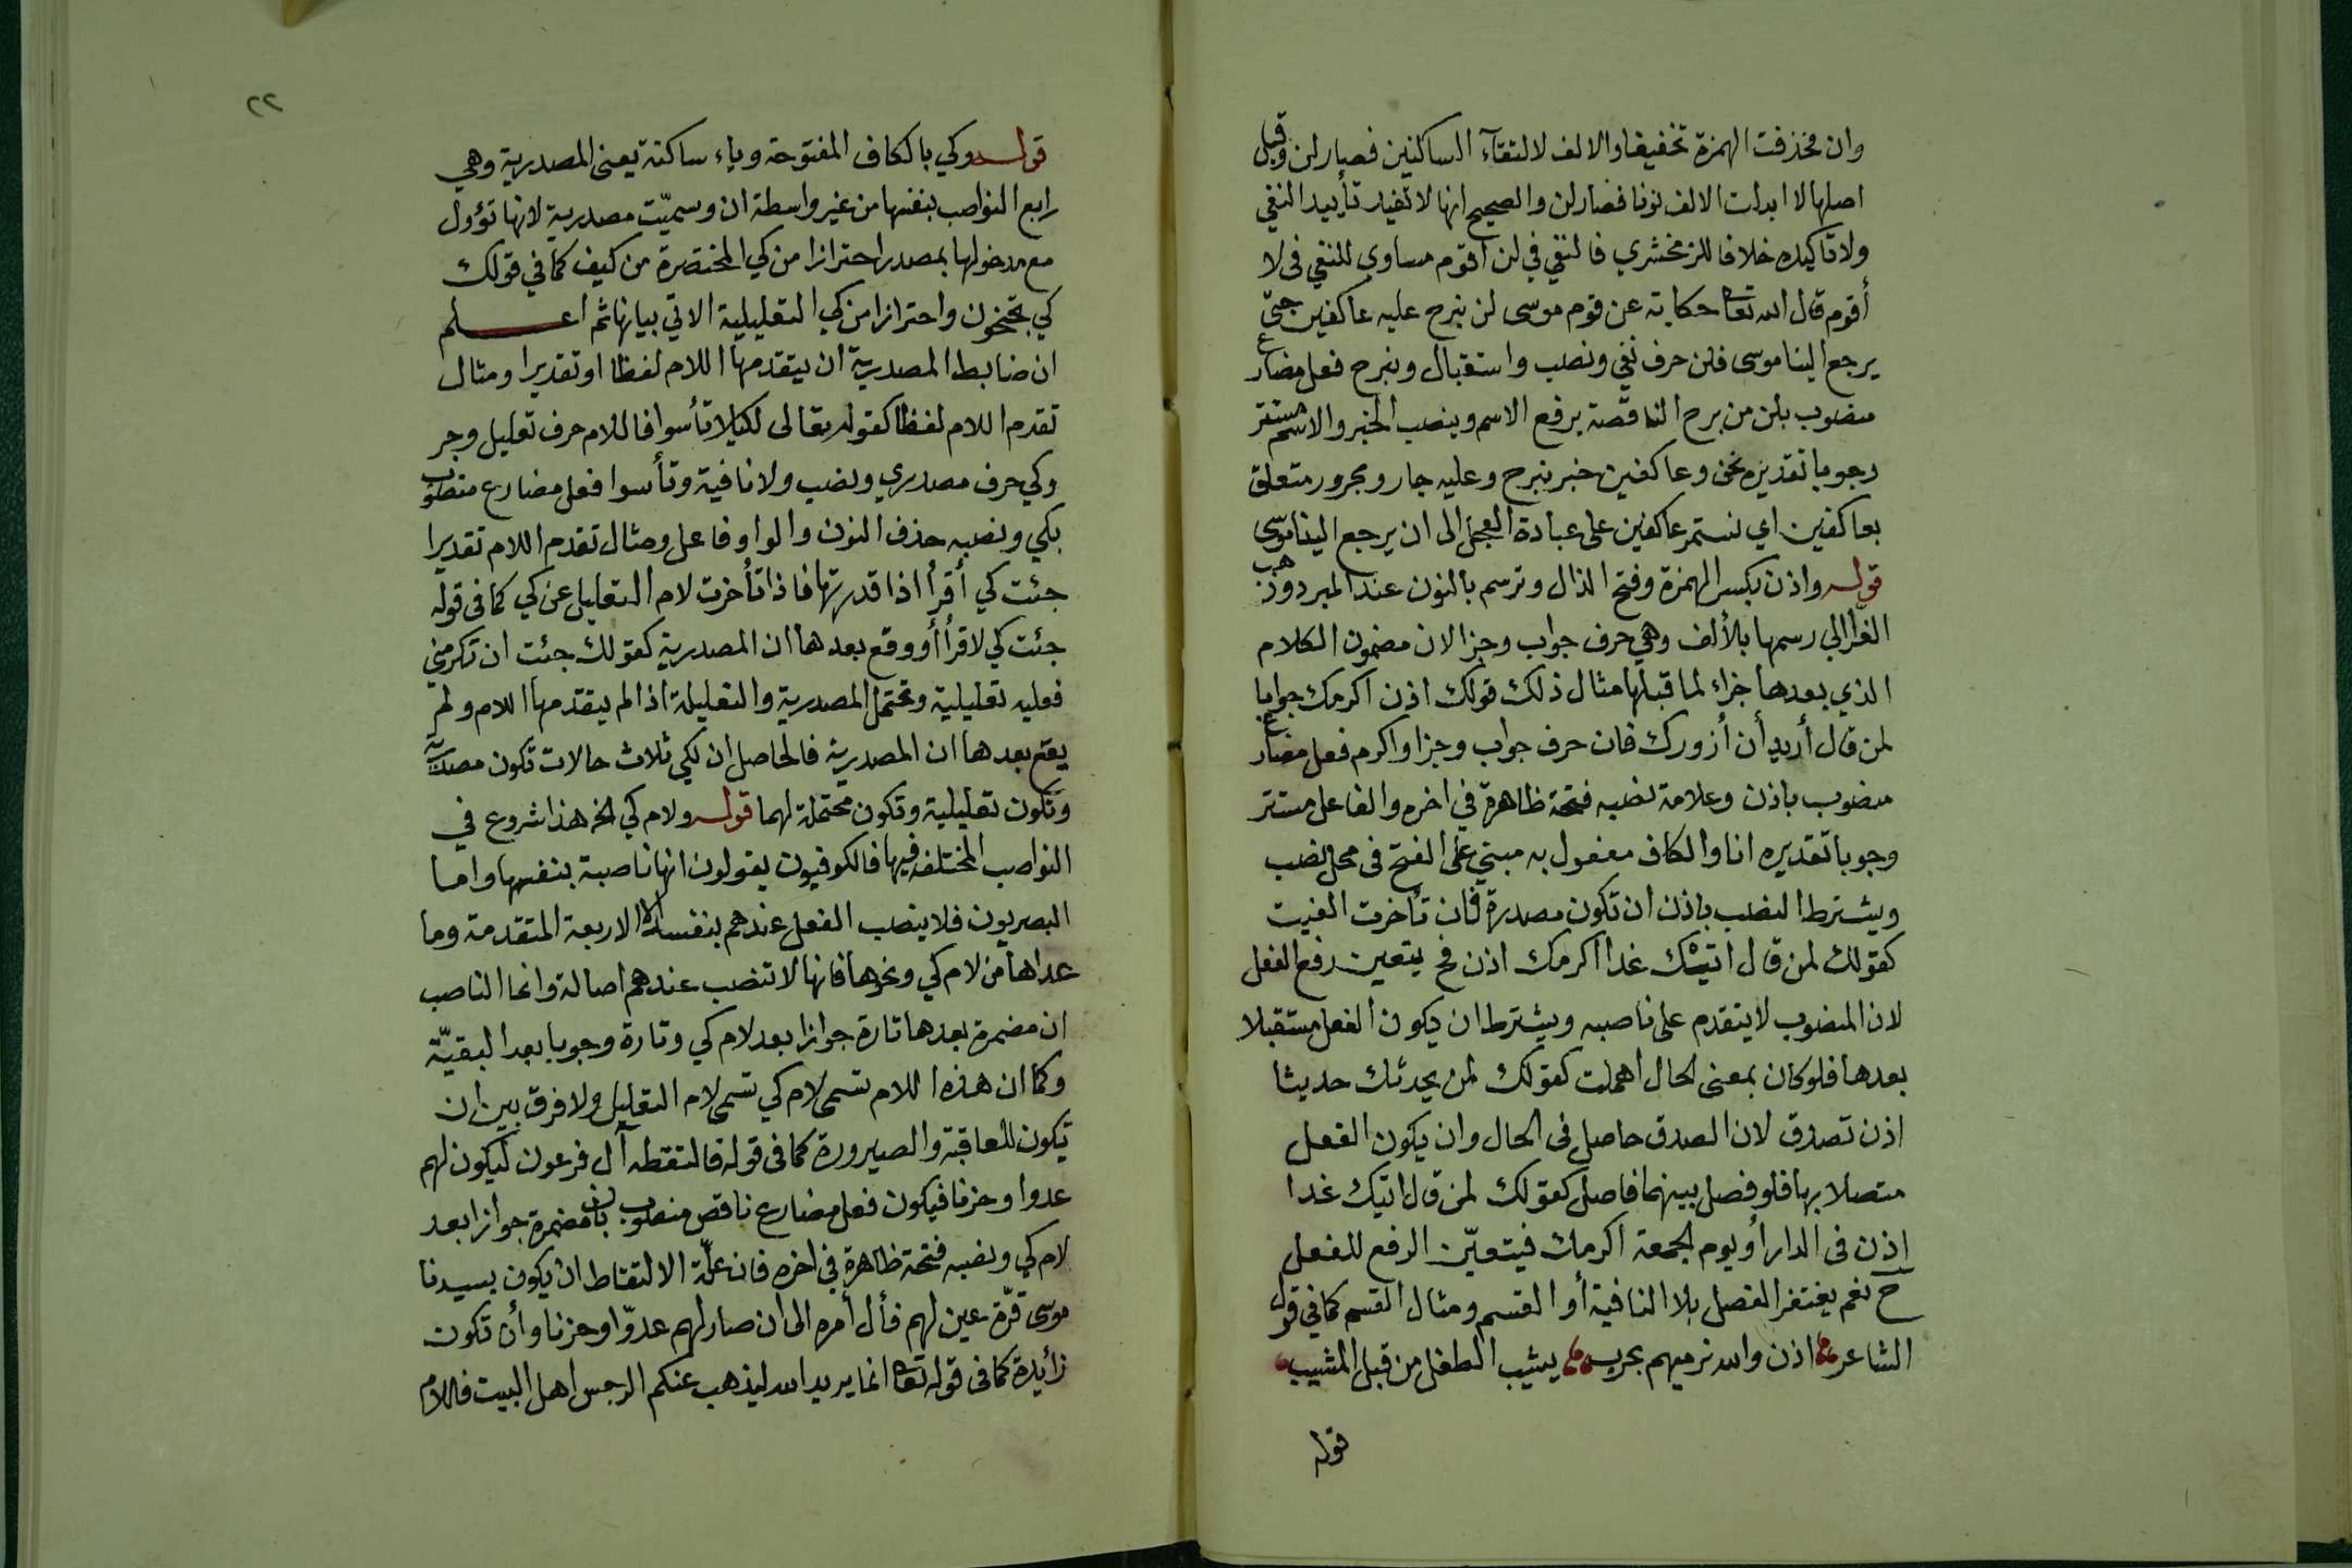 وان فحذفت الهمزة تخفيفا والالف لالتقآء الساكنين فصار لن وقيل
اصلها لا ابدلت الالف نونا فصار لن والصحيح انها لا تفيد تأبيد النفي
ولا تاكيده خلافا للزمخشري فالنفي في لن اقوم مساوي للنفي فى لا
أقوم قال الله تعا حكاية عن قوم موسى لن نبرح عليه عاكفين حتى
يرجع الينا موسى فلن حرف نفي ونصب واستقبال ونبرح فعل مضارع
منصوب بلن من برح الناقصة يرفع الاسم وينصب الخبر والاسم مستتر
وجوبا تقديره نحن وعاكفين خبر نبرح وعليه جار ومجرور متعلق
بعاكفين اي نستمر عاكفين على عبادة العجل الى ان يرجع الينا موسى
قوله واذن بكسر الهمزة وفتح الذال وترسم بالنون عند المبرد وذهب
الفرا الي رسمها بالألف وهي حرف جواب وجزا لان مضمون الكلام
الذي بعدها جزاء لما قبلها مثال ذلك قولك اذن اكرمك جوابا
لمن قال أريد أن أزورك فان حرف جواب وجزا واكرم فعل مضارع
منصوب باذن وعلامة نصبه فتحة ظاهرة في اخره والفاعل مستتر
وجوبا تقديره انا والكاف مفعول به مبني على الفتح فى محل نصب
ويشترط النصب باذن ان تكون مصدرة فان تأخرت الغيت
كقولك لمن قال اتيتك غدا اكرمك اذن فح يتعين رفع الفعل
لان المنصوب لا يتقدم على ناصبه ويشترط ان يكون الفعل مستقبلا
بعدها فلو كان بمعنى الحال اهملت كقولك لمن يحدثك حديثا
اذن تصدق لان الصدق حاصل فى الحال وان يكون الفعل
متصلا بها فلو فصل بينهما فاصل كقولك لمن قال اتيك غدا
اذن فى الدار أو يوم الجمعة اكرمك فيتعيّن الرفع للفعل
ح نعم يغتفر الفصل بلا النافية أو القسم ومثال القسم كما في قول
الشاعر اذن والله نرميهم بحرب يشيب الطفل من قبل المشيب
قوله
٢٢
قوله وكي بالكاف المفتوحة وياء ساكنة يعنى المصدرية وهي
رابع النواصب بنفسها من غير واسطة ان وسميّت مصدرية لانها تؤول
مع مدخولها بمصدر احترازا من كي المختصرة من كيف كما في قولك
كي تجنحون واحترازا من كي التعليلية الاتي بيانها ثم اعلم
ان ضابط المصدرية ان يتقدمها اللام لفظا او تقديرا ومثال
تقدم اللام لفظا كقوله تعالى لكيلا تأسوا فاللام حرف تعليل وجر
وكي حرف مصدري ونصب ولا نافية وتأسوا فعل مضارع منصوب
بكي ونصبه حذف النون والواو فاعل ومثال تقدم اللام تقديرا
جئت كي أقرأ اذا قدرتها فاذا تأخرت لام التعليل عن كي كما فى قوله
جئت كي لاقرأ أو وقع بعدها ان المصدرية كقولك جئت ان تكرمني
فعليه تعليلية وتحتمل المصدرية والتعليلة اذا لم يتقدمها اللام ولم
يقع بعدها ان المصدرية فالحاصل ان لكي ثلاث حالات تكون مصدرية
وتكون تعليلية وتكون محتملة لهما قوله ولام كي الخ هذا شروع في
النواصب المختلف فيها فالكوفيون يقولون انها ناصبة بنفسها واما
البصريون فلا ينصب الفعل عندهم بنفسه الا الاربعة المتقدمة وما
عداها من لام كي ونحوها فانها لا تنصب عندهم اصالة وانما الناصب
ان مضمرة بعدها تارة جوازا بعد لام كي وتارة وجوبا بعد البقيّة
وكما ان هذه اللام تسمى لام كي تسمى لام التعليل ولا فرق بين ان
تكون للعاقبة والصيرورة كما فى قوله فالتقطه آل فرعون ليكون لهم
عدوا وحزنا فيكون فعل مضارع ناقص منصوب بان مضمرة جوازا بعد
لام كي ونصبه فتحة ظاهرة في اخره فان علّة الالتقاط ان يكون سيدنا
موسى قرّة عين لهم فأل أمره الى ان صار لهم عدوّا وحزنا وأن تكون
زأيدة كما فى قوله تعا انما يريد الله ليذهب عنكم الرجس اهل البيت فاللام